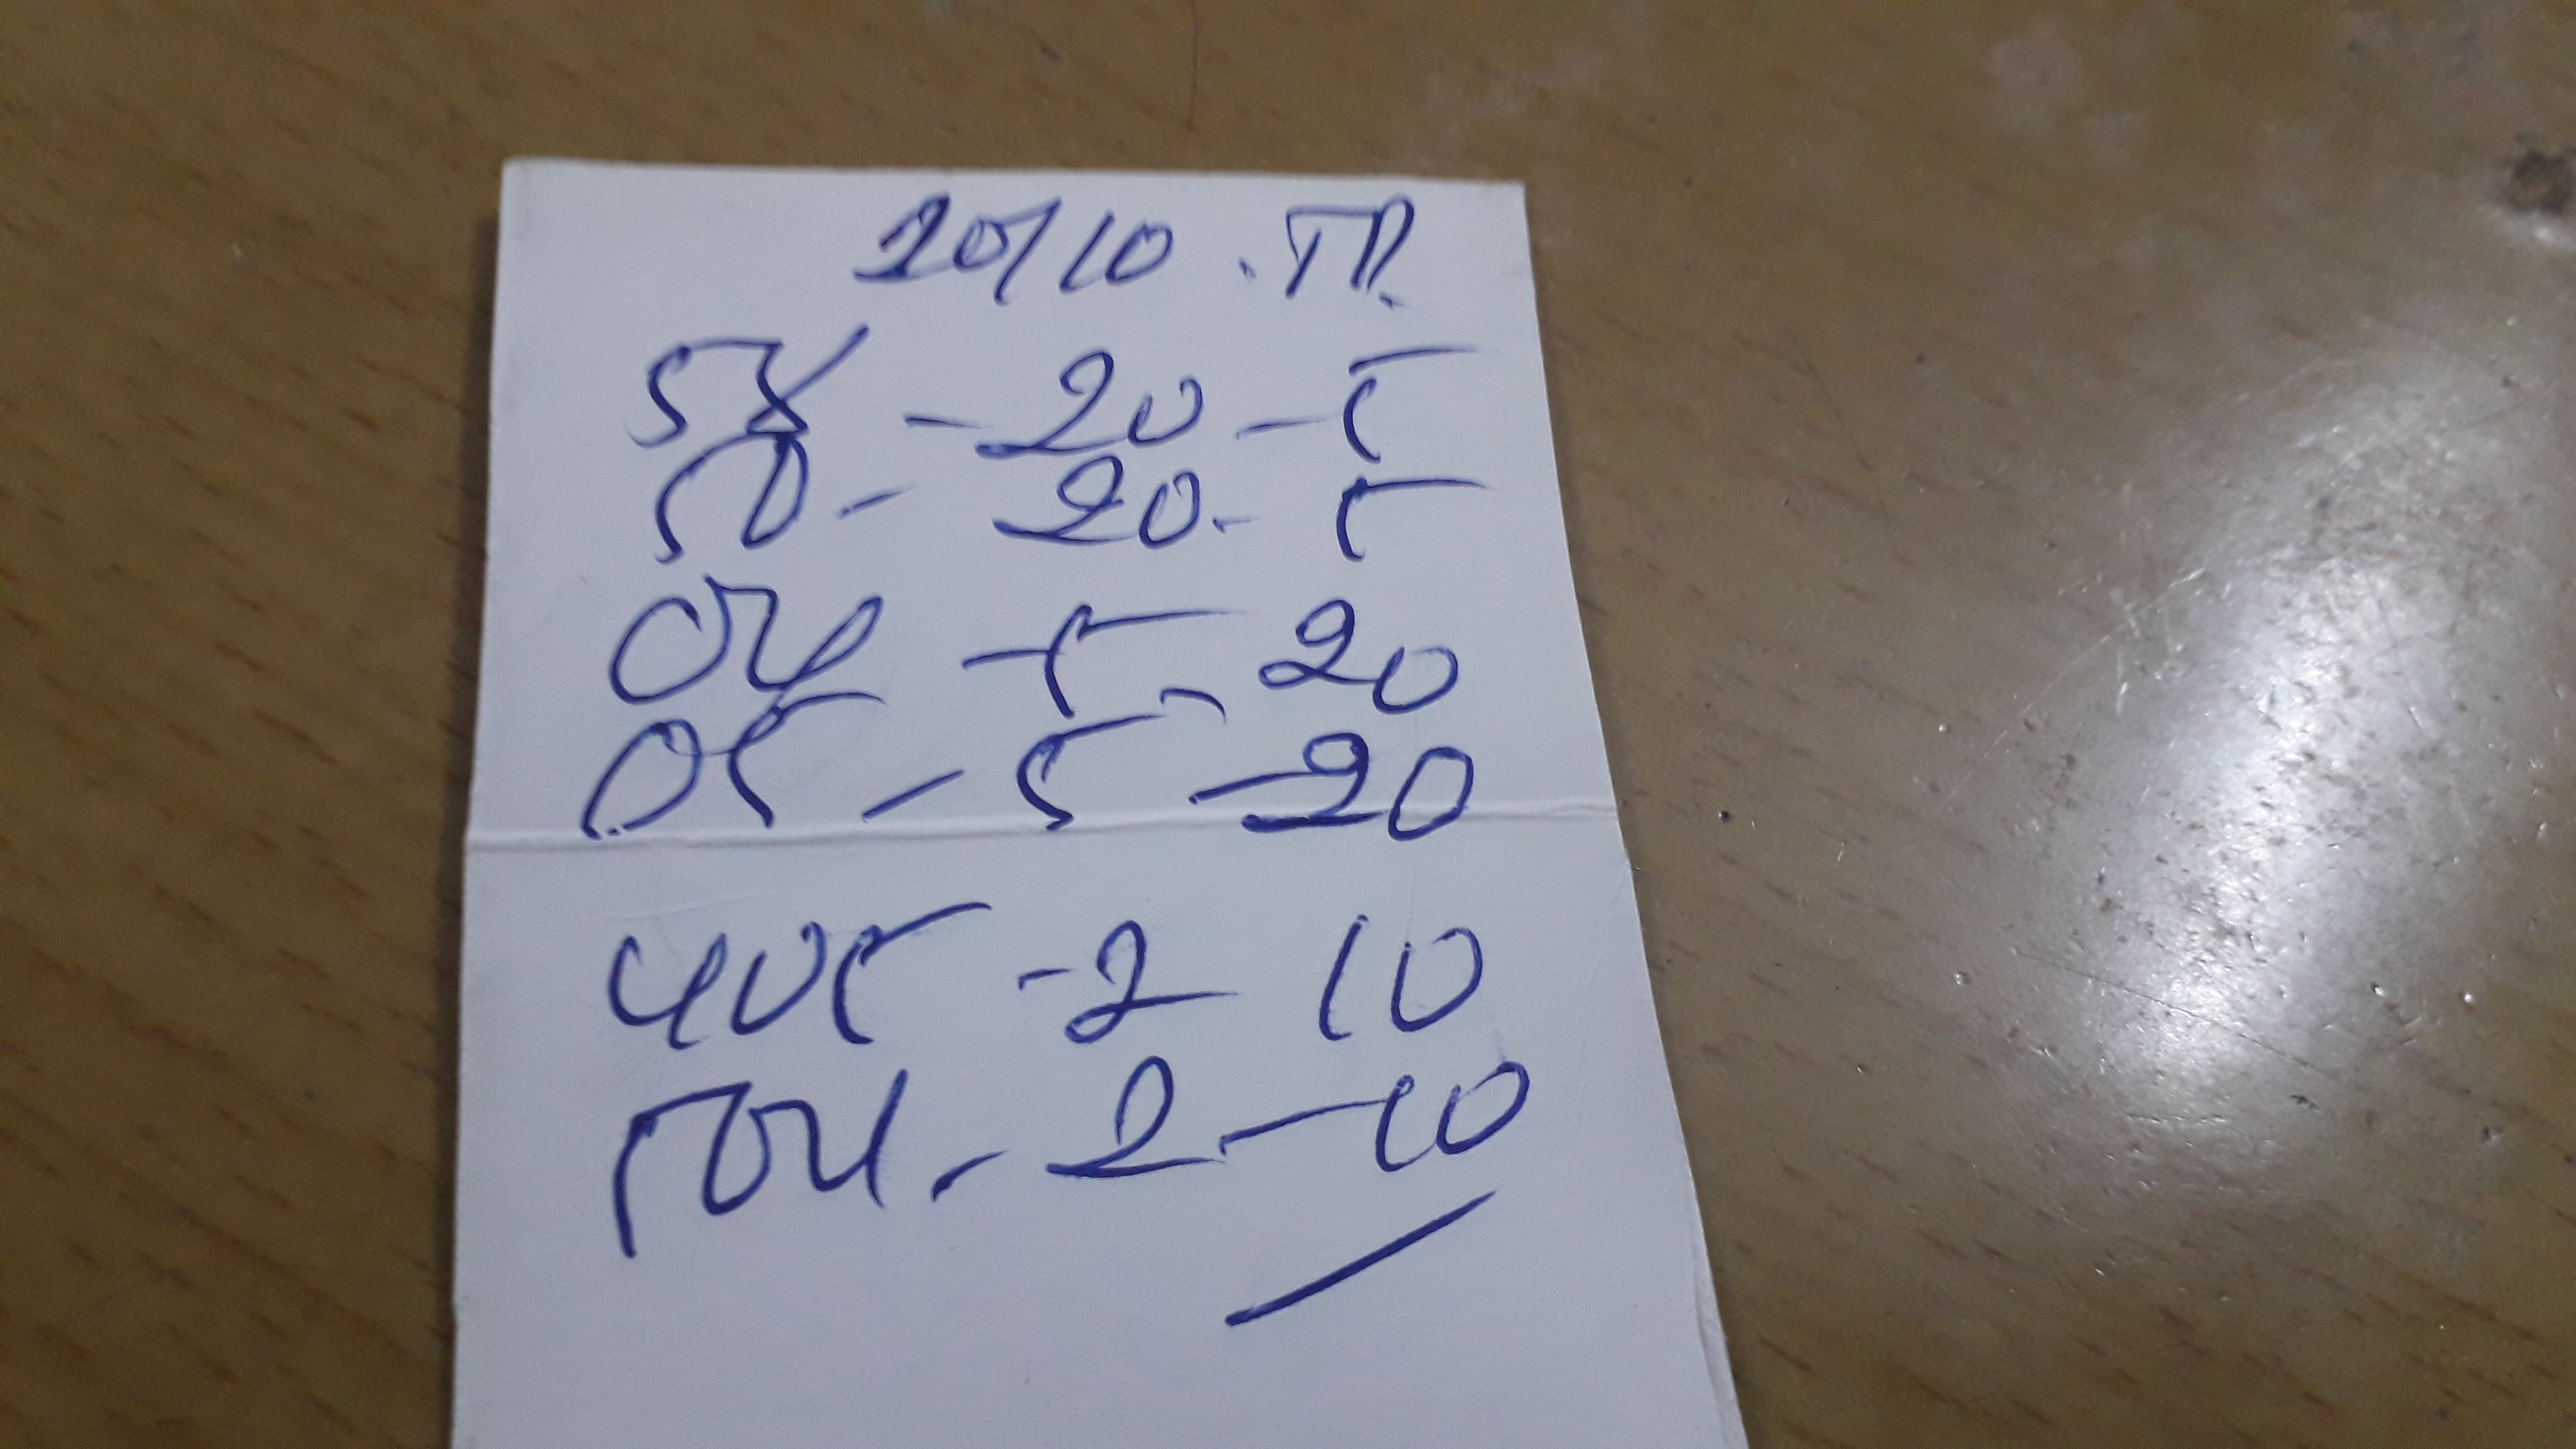 20/10 .TR.
54 - 20 - 5
50 - 20 - 5
04 - 5 20
05 - 5 - 20
405 - 2 10
504 - 2 - 10